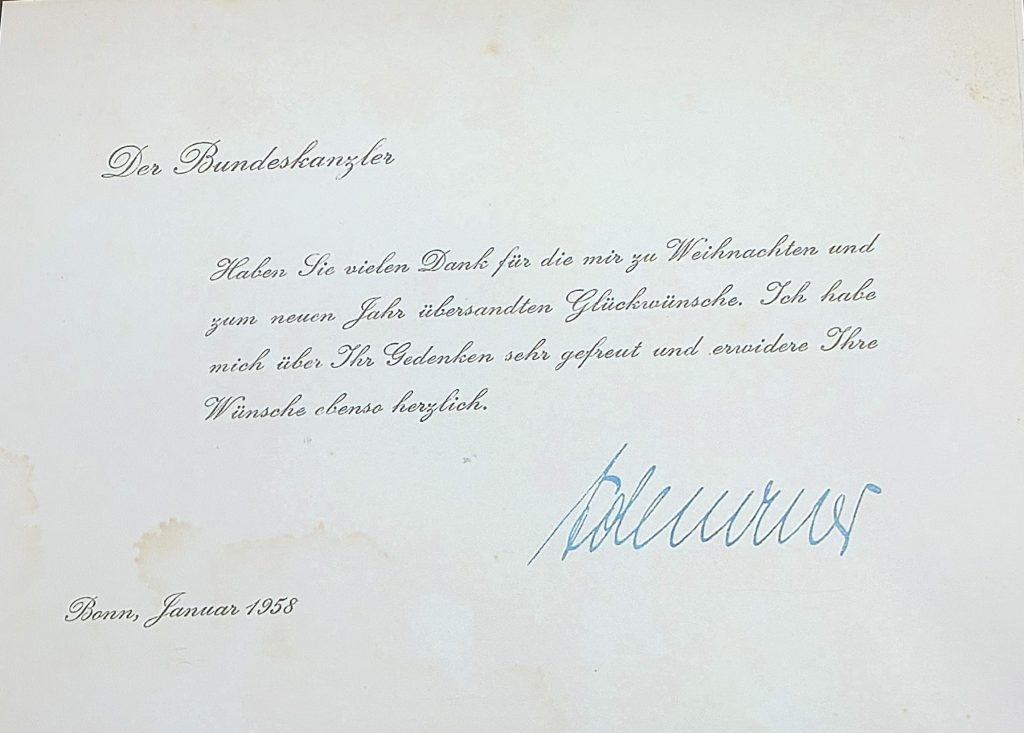 Der Bundeskanzler
Haben Sie vielen Dank für die mir zu Weihnachten und
zum neuen Jahr übersandten Glückwünsche. Ich habe
mich über Ihr Gedenken sehr gefreut und erwidere Ihre
Wünsche ebenso herzlich.
Adenauer
Bonn, Januar 1958